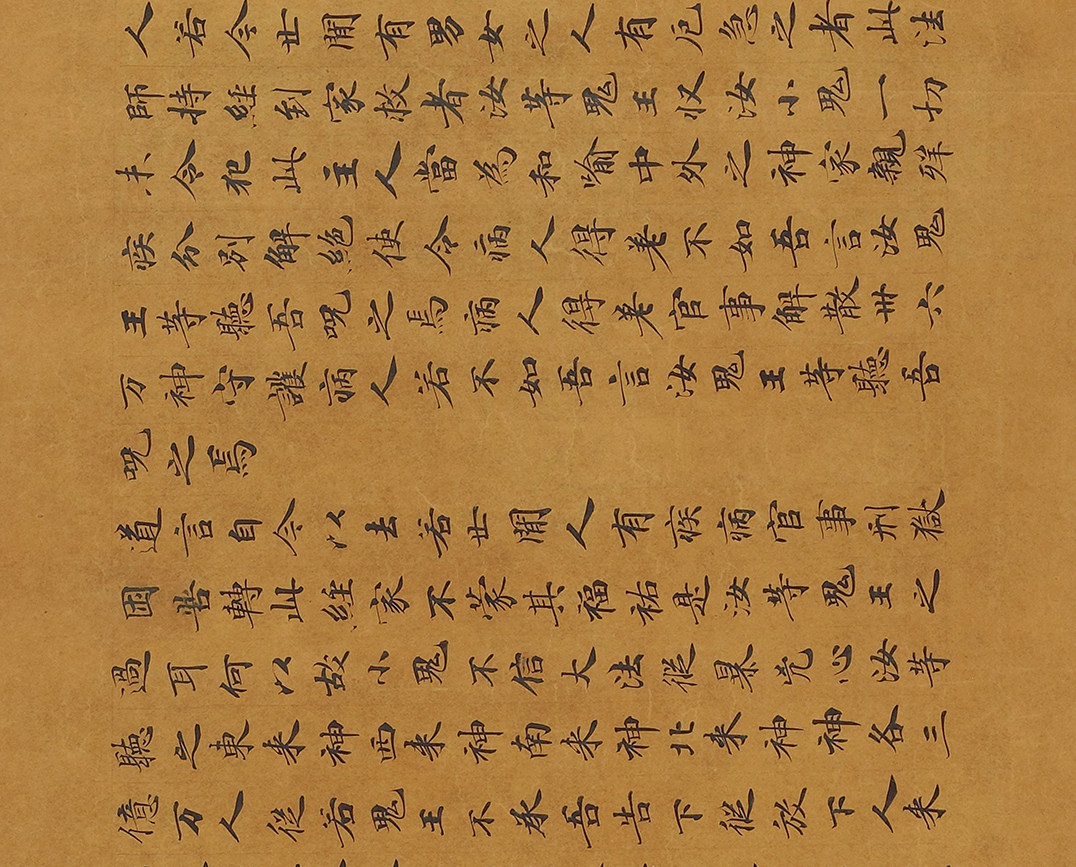 人若今世間有男女之人有厄急之者此法
師持經到家救者汝等鬼王收汝小鬼一切
未令犯此主人當為和喻中外之神家親殃
疾分別解絕使令病人得卷不如吾言汝鬼
王等聽吾呪之焉病人得卷官事解散卅六
万神守護病人若不如吾言汝鬼王等聽吾
呪之焉
道言自今以去若世間人有疾病官事刑獄
困苦轉此經家不蒙其福祐是汝等鬼王之
過耳何以故小鬼不信大法縱暴兇心汝等
聽之東来神西来神南来神北来神神各三
億万人從若鬼王不承吾告下縱放下人来